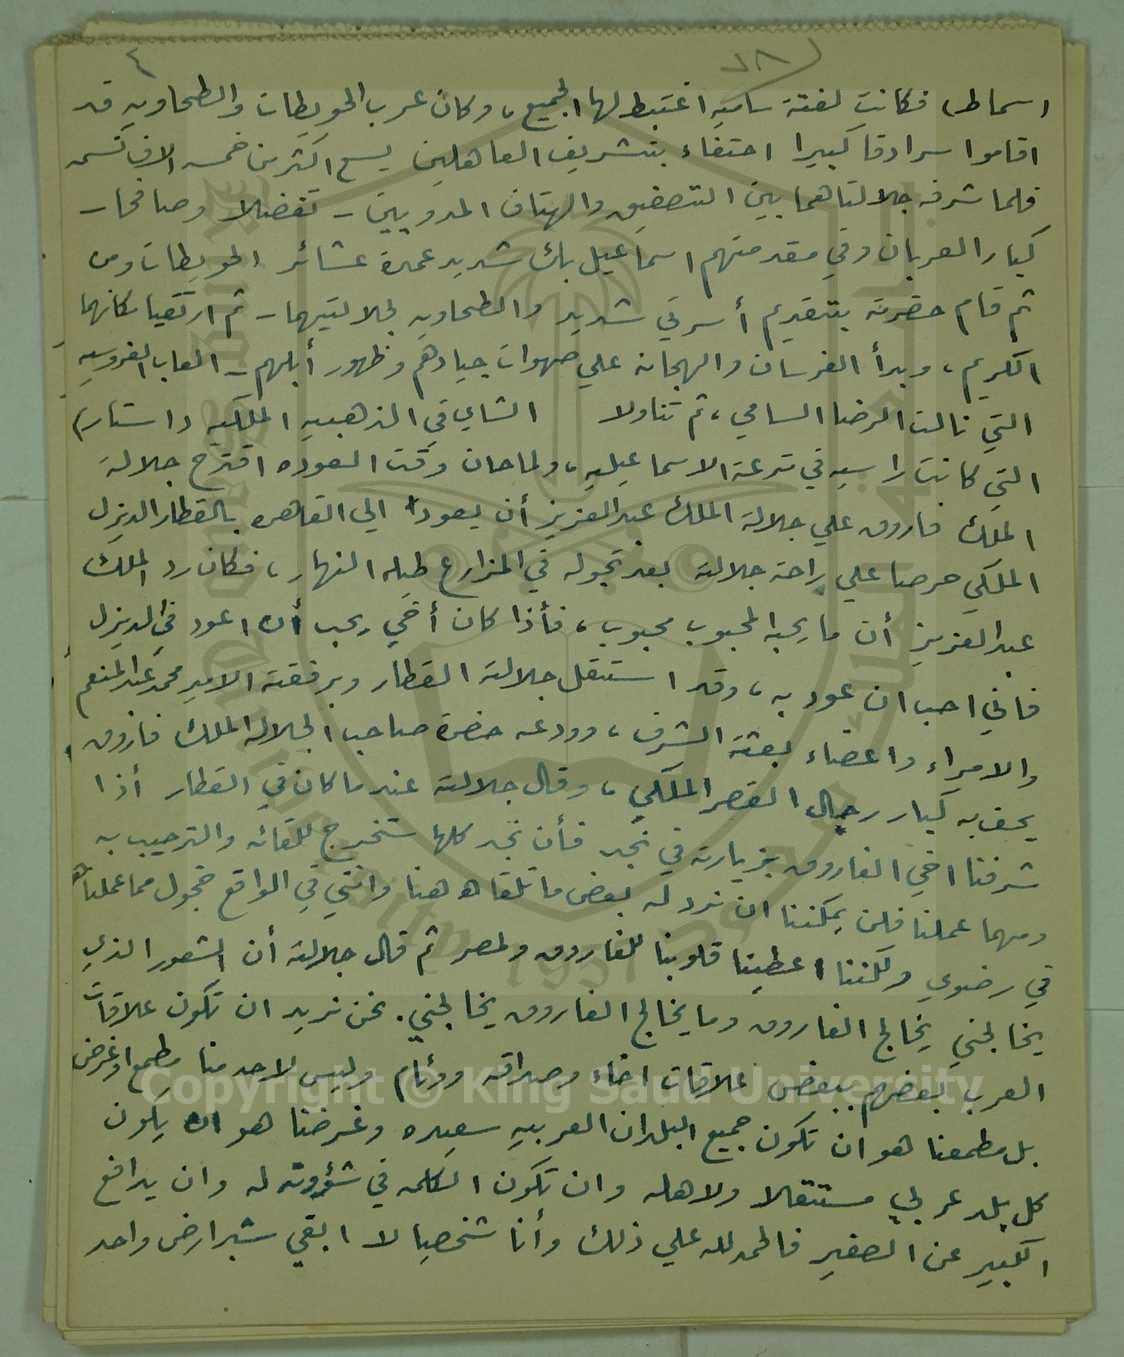 ٤
اسماط) فكانت لفتة ساميه اغتبط لها الجميع، وكان عرب الحويطات والطحاويه قد
اقاموا سرادقا كبيرا احتفاء بتشريف العاهلين يسع اكثر من خمسه الاف نسمه
فلما شرفه جلالتاهما بين التصفيق والهتاف المدويين - تفضلا وصافحا -
كبار العربان وفي مقدمتهم اسماعيل بك شديد عمدة عشائر الحويطات ومن
ثم قام حضرته بتقديم أسرتي شديد والطحاويه لجلالتيهما - ثم ارتقيا مكانهما
الكريم، وبدأ الفرسان والهجانه علي صهوات جيادهم وظهور أبلهم - العاب الفروسيه
التي نالت الرضا السامي، ثم تناولا الشاي في الذهبيه الملكيه (استار)
التي كانت راسيه في ترعة الاسماعيليه، ولما حان وقت العوده اقترح جلالة
الملك فاروق علي جلالة الملك عبدالعزيز أن يعودا الي القاهره بالقطار الديزل
الملكي حرصا علي راحة جلالته بعد تجوله في المزارع طيله النهار، فكان رد الملك
عبدالعزيز أن ما يحبه المحبوب محبوب، فأذا كان أخي يحب أن اعود في الديزل
فاني احب ان عود به، وقد استقل جلالته القطار وبرفقته الامير محمد عبدالمنعم
والامراء واعضاء بعثة الشرف، وودعه حضرة صاحب الجلاله الملك فاروق
يحف به كبار رجال القصر الملكي، وقال جلالته عندما كان في القطار أذا
شرفنا اخي الفاروق بزيارته في نجد فأن نجد كلها ستخرج للقائه والترحيب به
ومهما عملنا فلن يمكننا ان نرد له بعض ما تلقاه هنا وانني في الواقع خجول مما عملناه
في رضوي ولكننا اعطينا قلوبنا للفاروق ولمصر ثم قال جلالته أن الشعور الذي
يخالجني يخالج الفاروق وما يخالج الفاروق يخالجني. نحن نريد ان تكون علاقات
العرب بعضهم ببعض علاقات اخاء وصداقه ووئام وليس لاحد منا مطمع او غرض
بل مطمعنا هو ان تكون جميع البلدان العربيه سعيده وغرضنا هو ان يكون
كل بلد عربي مستقلا ولاهله وان تكون الكلمه في شؤونه له وان يدافع
الكبير عن الصغير فالحمد لله علي ذلك وأنا شخصيا لا ابقي شبرا ارض واحد
Copyright © King Saud University